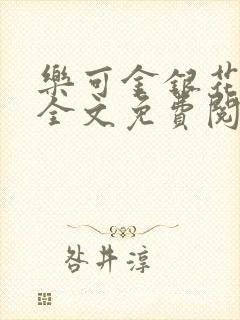 樂可金銀花
全文免費閱
咎井淳